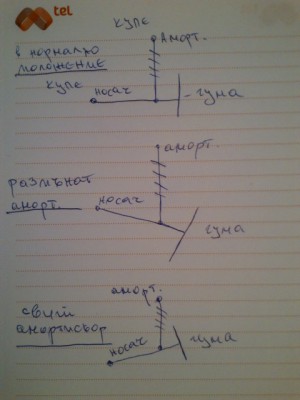 mtel
купе
Аморт.
в нормално
положение
купе
носач
- гума
аморт.
размънат
носач
аморт.
гума
аморт.
свит
амортисьор
носач
гума